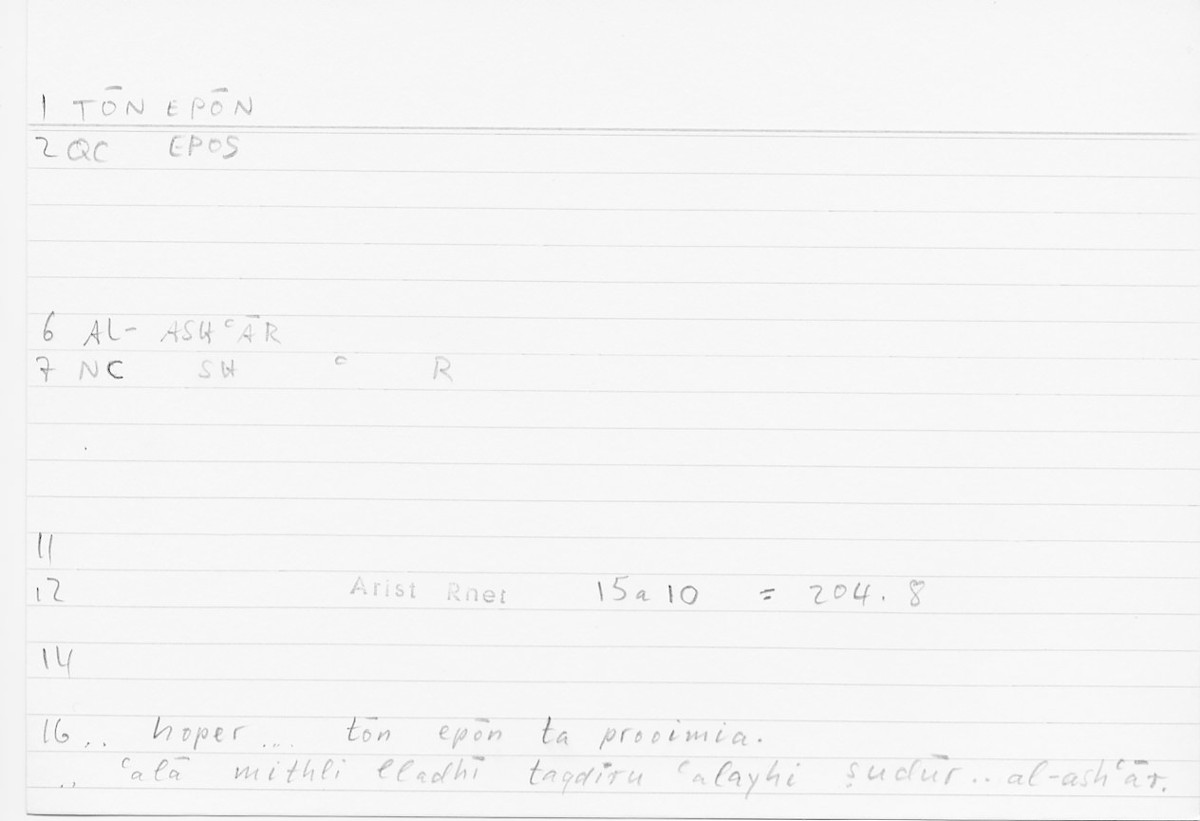 1 TŌN EPŌN
2 QC EPOS
6 AL- ASHᶜĀR
7 NC SH ᶜ R
11
12 Arist Rhet 15a10 = 204.8
14
16.. hoper .... tōn epōn ta prooimia.
.. ᶜalā mithli lladhī taqdīru ᶜalayhi ṣudūr.. al-ashᶜār.